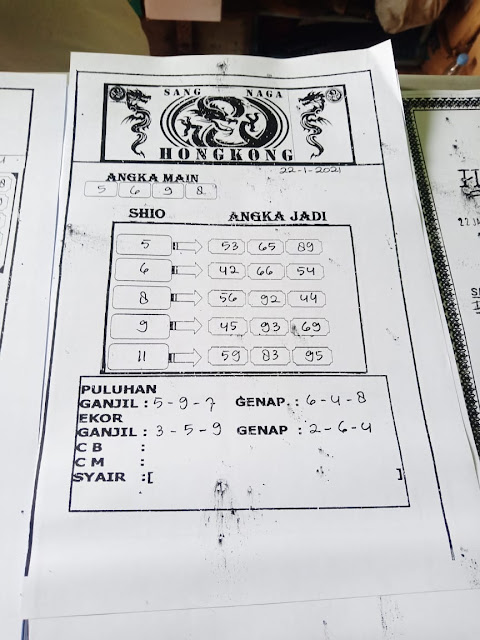 SANG NAGA
HONGKONG
22-1-2021
ANGKA MAIN
5 6 9 8
SHIO ANGKA JADI
5 53 65 89
6 42 66 54
8 56 92 44
9 45 93 69
11 59 83 95
PULUHAN
GANJIL : 5-9-7 GENAP : 6-4-8
EKOR
GANJIL : 3-5-9 GENAP : 2-6-4
C B :
C M :
SYAIR :[ ]
22 JA